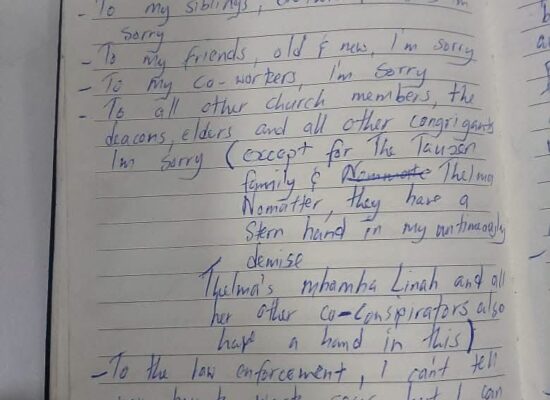 - To my siblings,
Sorry
- To my friends, old & new, I'm sorry
- To my co-workers, I'm sorry
- To all other church members, the
deacons, elders and all other congrigants
I'm sorry (except for The Tauzen
family & Thelma
Nomatter, they have a
stern hand in my untimeously
demise
Thelma's mbamba Linah and all
her other co-conspirators also
have a hand in this)
- To the law enforcement, I can't tell
I can